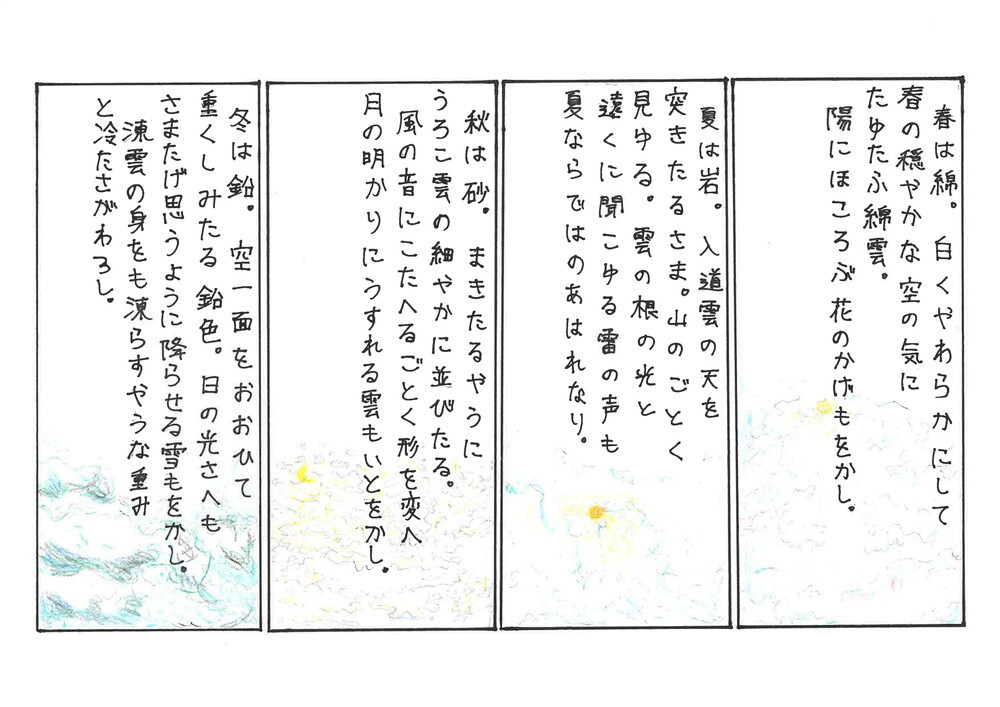 春は綿。白くやわらかにして
春の穏やかな空の気に
たゆたふ綿雲。
陽にほころぶ花のかげもをかし。
夏は岩。入道雲の天を
突きたるさま。山のごとく
見ゆる。雲の根の光と
遠くに聞こゆる雷の声も
夏ならではのあはれなり。
秋は砂。まきたるやうに
うろこ雲の細やかに並びたる。
風の音にこたへるごとく形を変へ
月の明かりにうすれる雲もいとをかし。
冬は鉛。空一面をおおひて
重くしみたる鉛色。日の光さへも
さまたげ思うように降らせる雪もをかし。
凍雲の身をも凍らすやうな重み
と冷たさがわろし。